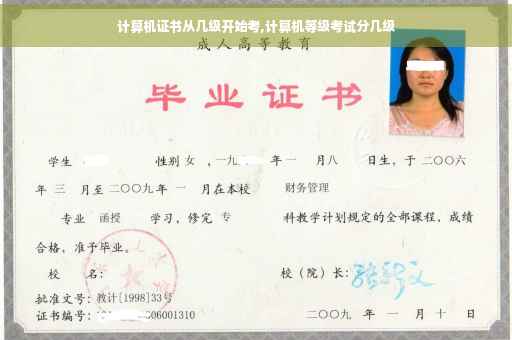 计算机证书从几级开始考,计算机等级考试分几级
成人高等教育
毕业证书
学生 性别 女 ,一九 年一 月八 日生,于二〇〇六
年 三 月至二〇〇九年 一 月在本校 财务管理
专业 函授 学习,修完 专 科教学计划规定的全部课程,成绩
合格,准予毕业。
校 名: 校(院)长:
批准文号:教计[1998]33号
证书编号: 06001310 二〇〇九 年 一 月 十 日